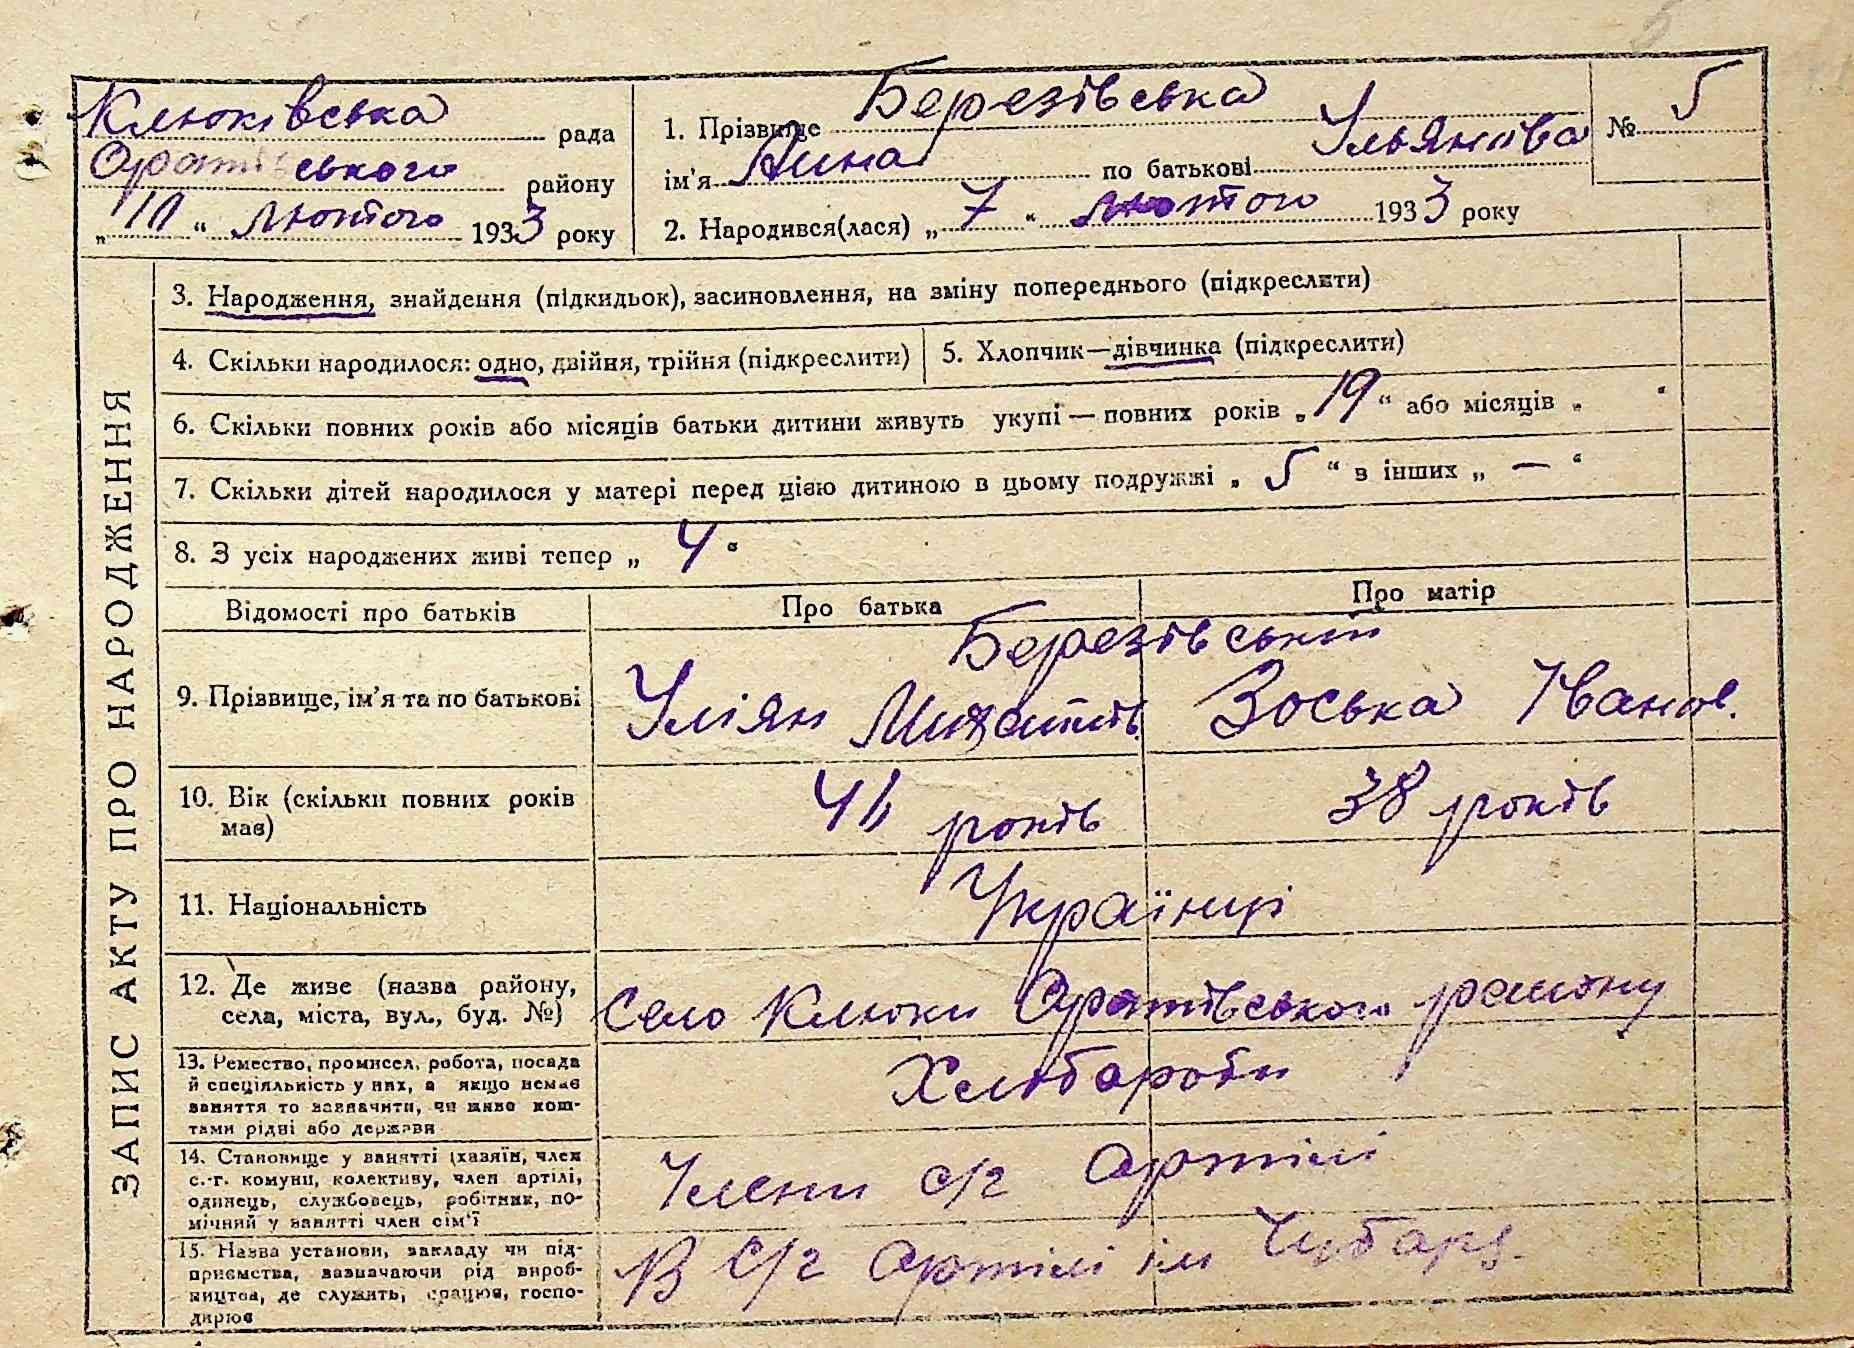 Клюківська рада
Оратівського району
„ 10 “ Лютого 1933 року
1. Прізвище Березівська
ім'я Анна по батькові Ульянова
№ 5
2. Народився(лася) „ 7 “ лютого 1933 року
ЗАПИС АКТУ ПРО НАРОДЖЕННЯ
3. Народження, знайдення (підкидьок), засиновлення, на зміну попереднього (підкреслити)
4. Скільки народилося: одно, двійня, трійня (підкреслити)
5. Хлопчик—дівчинка (підкреслити)
6. Скільки повних років або місяців батьки дитини живуть укупі — повних років „ 19 “ або місяців „ “
7. Скільки дітей народилося у матері перед цією дитиною в цьому подружжі „ 5 “ в інших „ — “
8. З усіх народжених живі тепер „ 4 “
Відомості про батьків
Про батька
Про матір
9. Прізвище, ім'я та по батькові
Березівські
Уліян
Зоська Іванов.
10. Вік (скільки повних років
має)
років
38 років
11. Національність
Українці
12. Де живе (назва району,
села, міста, вул., буд. №)
Село Клюки Оратівського району
13. Ремество, промисел, робота, посада
й спеціяльність у них, а якщо немає
заняття то зазначити, чи живе кош-
тами рідні або держави
Хлібороби
14. Становище у занятті (хазяїн, член
с.-г. комуни, колективу, член артілі,
одинець, службовець, робітник, по-
мічний у занятті член сім'ї
Члени с/г Артілі
15. Назва установи, закладу чи під-
приємства, зазначаючи рід вироб-
ництва, де служить, працює, госпо-
дарює
В С/г Артілі ім Чубаря